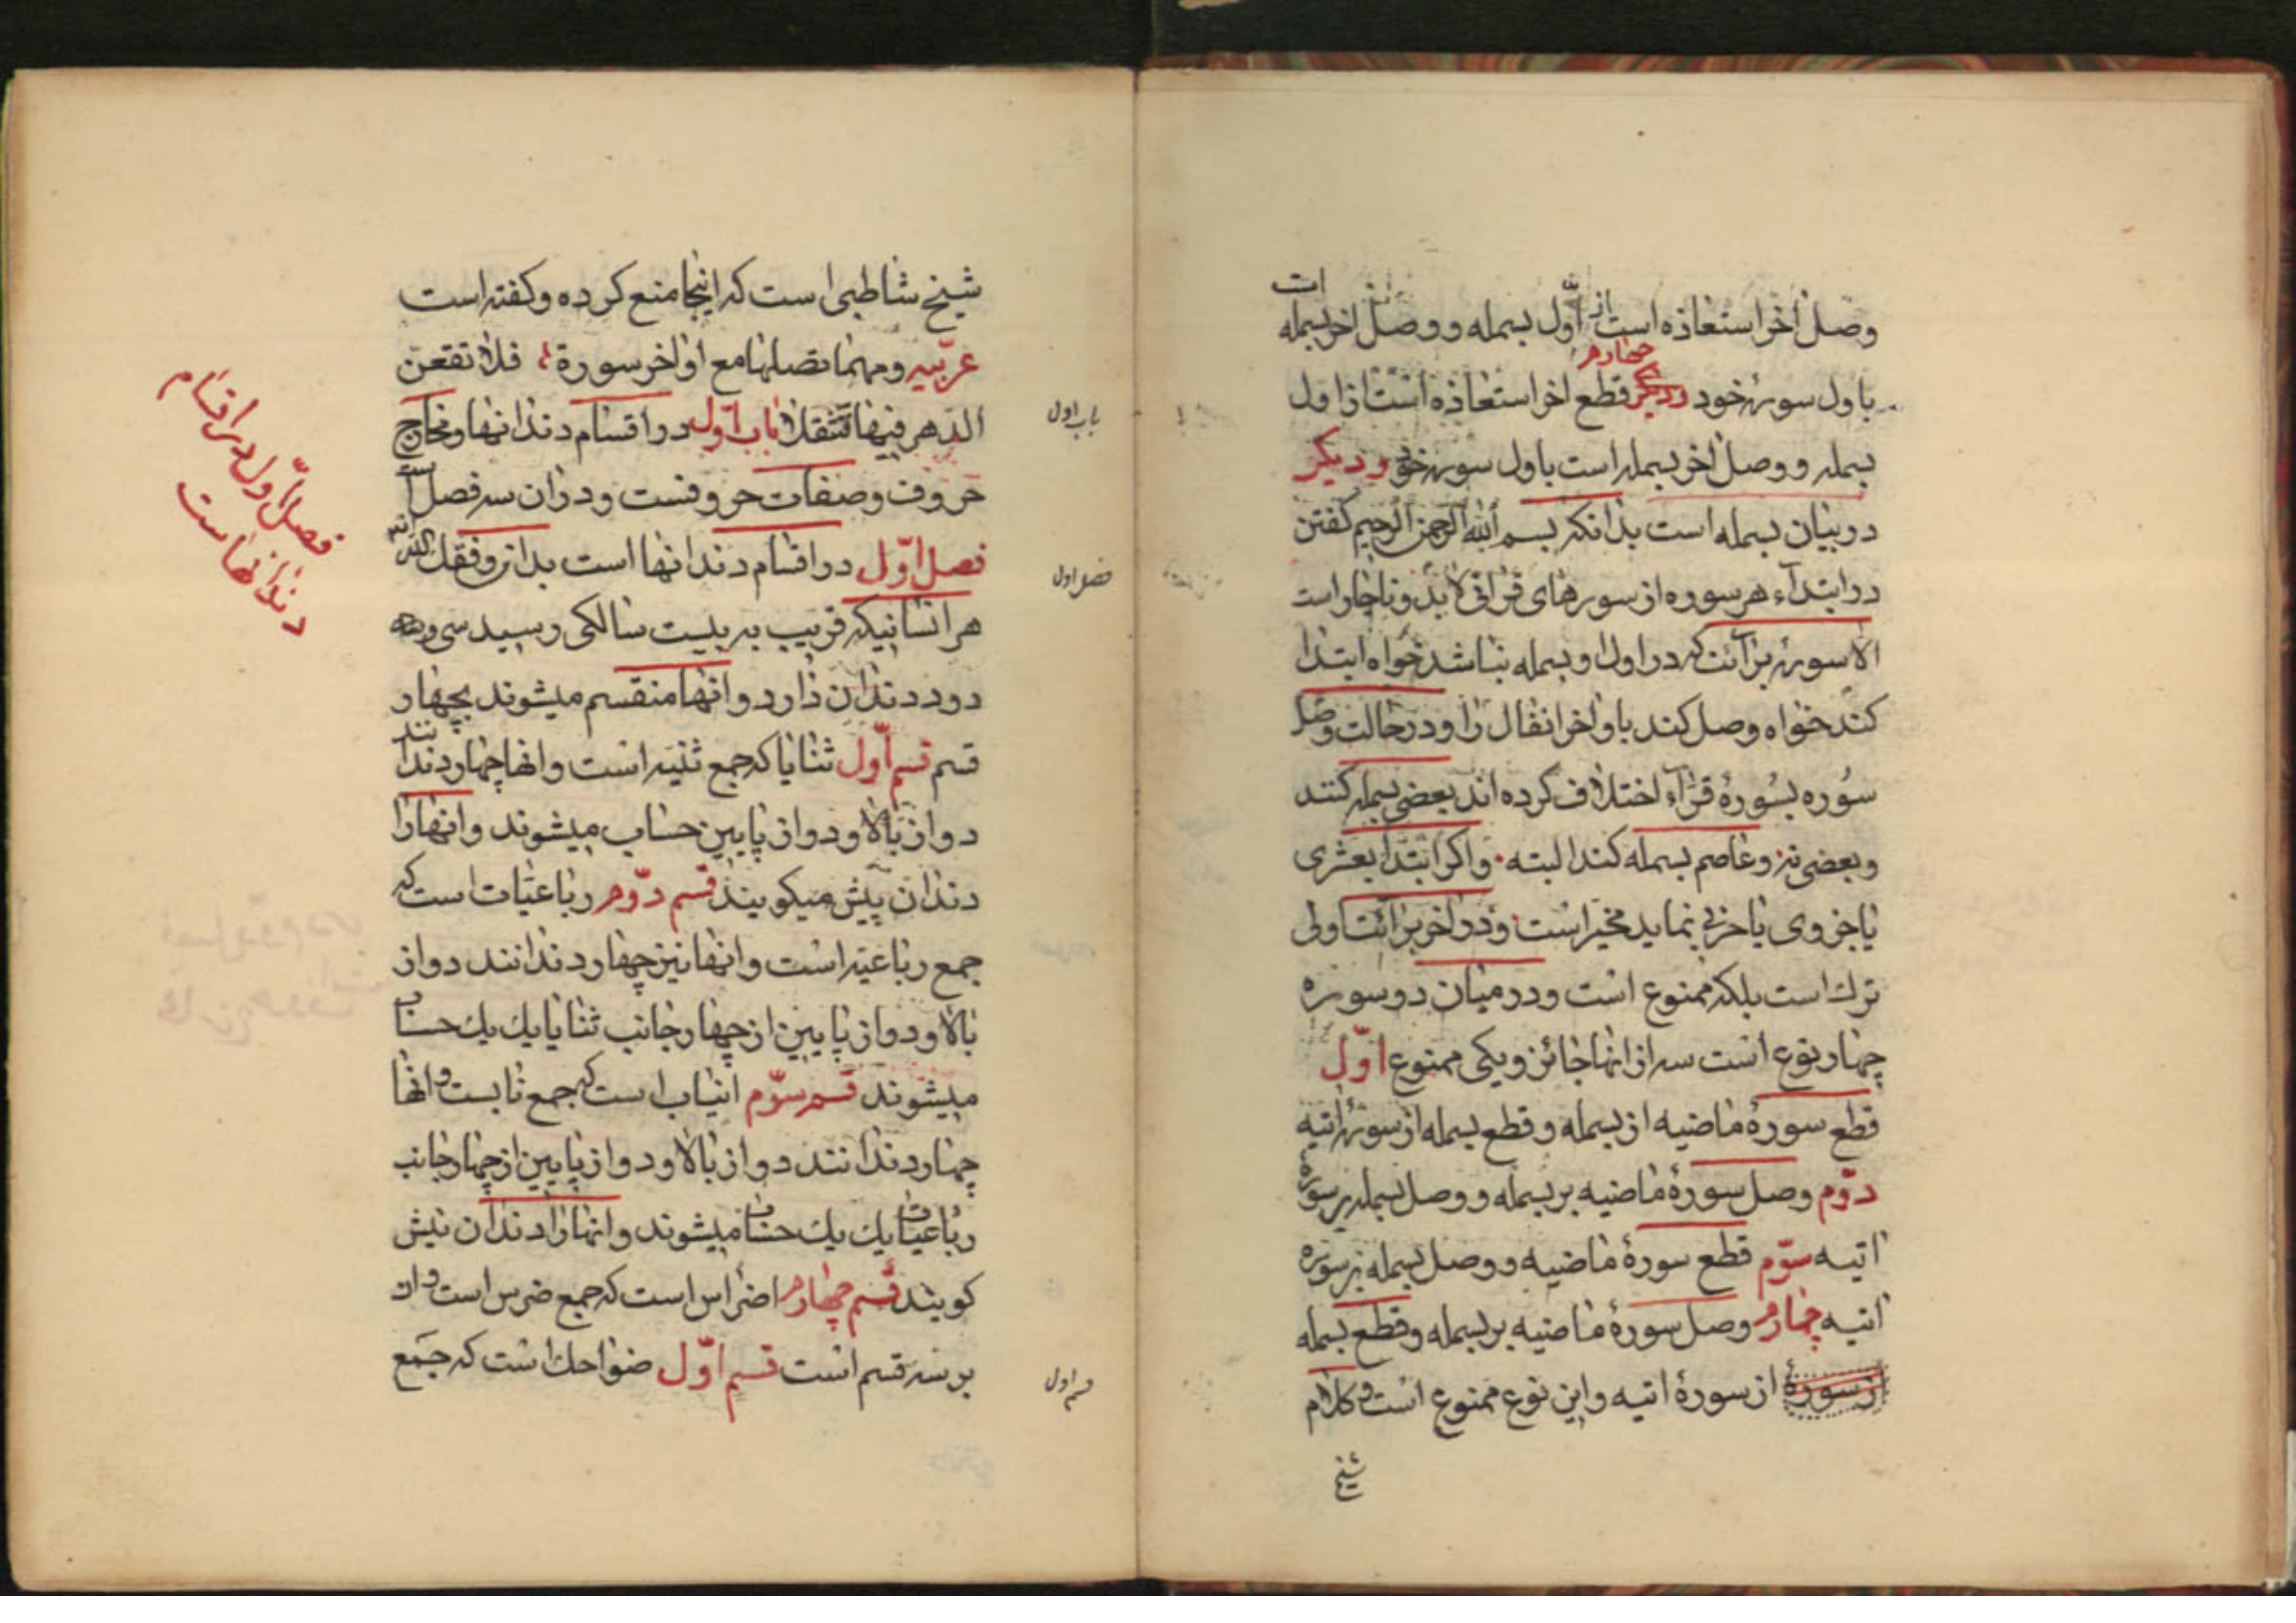 وصل اخر استعاذه است از اول بسمله و وصل اخر بسمله ات
باول سورۀ خود ودیکر چهارم قطع اخر استعاذه است از اول
بسمله و وصل اخر بسمله است باول سورۀ خود و دیکر
در بیان بسمله است بدانکه بسم الله الرحمن الرحیم کفتن
در ابتدآء هر سوره از سورهای قرانی لابد و ناچار است
الا سورۀ برآئت که در اول او بسمله نباشد خواه ابتدا
کند خواه وصل کند باواخر انفال را و در حالت وصل
سوره بسورۀ قرآء اختلاف کرده اند بعضی بسمله کنند
و بعضی نه و عاصم بسمله کند البته واکر ابتدا بعشری
یا جزوی یا حزبی نماید مخیر است و در اخر برائت اولی
ترك است بلکه ممنوع است و در میان دو سوره
چهار نوع است سه از انها جائز و یکی ممنوع اوّل
قطع سورۀ ماضیه از بسمله و قطع بسمله از سورۀ اتیه
دوّم وصل سورۀ ماضیه بر بسمله و وصل بسمله بر سورۀ
اتیه سوّم قطع سورۀ ماضیه و وصل بسمله بر سورۀ
اتیه چهارم وصل سورۀ ماضیه بر بسمله و قطع بسمله
از سورۀ از سورۀ اتیه و این نوع ممنوع است و کلام
شیخ
شیخ شاطبی است که اینجا منع کرده و کفته است
عربیه ومهما تصلها مع اواخر سورة فلا تقفن
الدهر فیها فتثقلا باب اوّل در اقسام دندانها و مخارج
باب اول
حروف و صفات حروفست و در ان سه فصل است
فصل اوّل در اقسام دندانها است بدان وفقك الله
فصل اول
هر انسانیکه قریب به بیست سالکی رسید سی و
دو دندان دارد و انها منقسم میشوند بچهار
قسم قسم اوّل ثنایا که جمع ثنیه است و انها چهار دندانند
دو از بالا و دو از پایین حساب میشوند و انها را
دندان پیش میکویند قسم دوّم رباعیات است که
جمع رباعیه است و انها نیز چهار دندانند دو از
بالا و دو از پایین از چهار جانب ثنایا یك یك حساب
میشوند قسم سوّم انیاب است که جمع نابست و انها
چهار دندانند دو از بالا و دو از پایین از چهار جانب
رباعیات یك یك حساب میشوند و انها را دندان نیش
کویند قسم چهارم اضراس است که جمع ضرس است و ان
بر سه قسم است قسم اوّل ضواحك است که جمع
قسم اول
فصل اوّل در اقسام
دندانها است